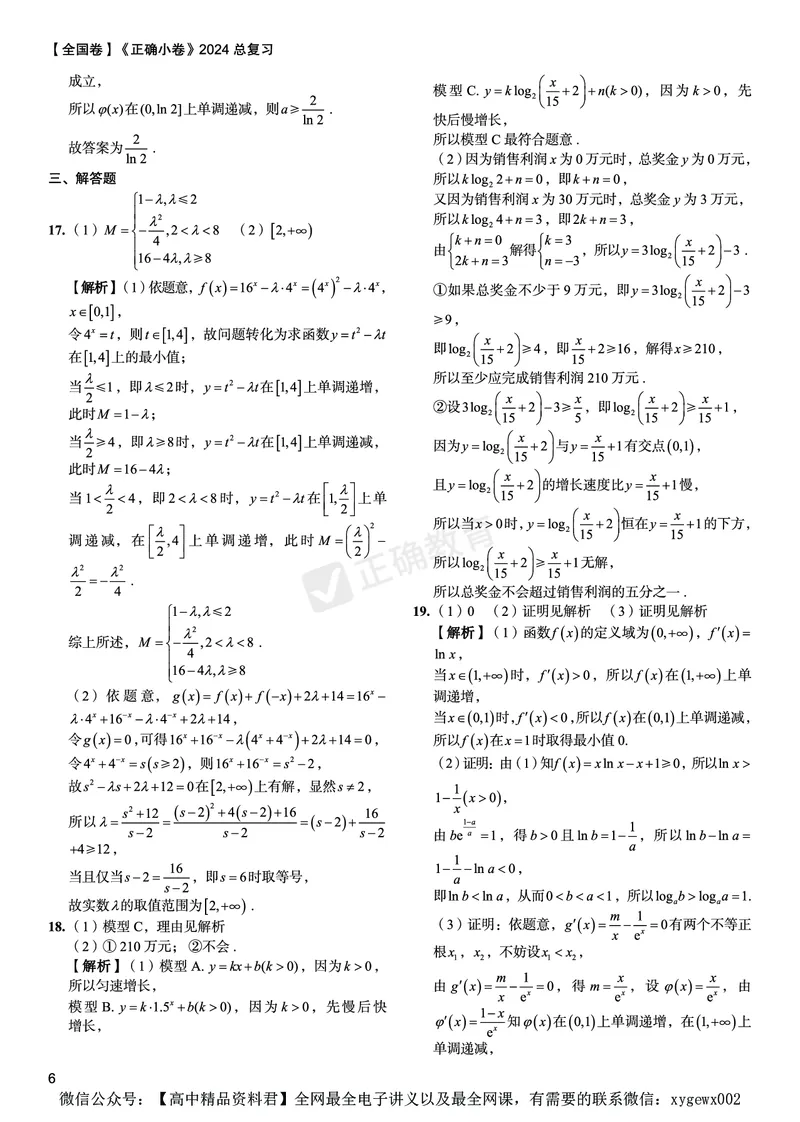 【全国卷】《正确小卷》2024 总复习
成立，
所以φ(x)在(0,ln 2]上单调递减，则a≥2/ln 2．
故答案为2/ln 2．
三、解答题
17.（1）M={1−λ,λ≤2; −λ²/4,2<λ<8; 16−4λ,λ≥8 （2）[2,+∞)
【解析】（1）依题意，f(x)=16ˣ−λ·4ˣ=(4ˣ)²−λ·4ˣ，
x∈[0,1]，
令4ˣ=t，则t∈[1,4]，故问题转化为求函数y=t²−λt
在[1,4]上的最小值；
当λ/2≤1，即λ≤2时，y=t²−λt在[1,4]上单调递增，
此时M=1−λ；
当λ/2≥4，即λ≥8时，y=t²−λt在[1,4]上单调递减，
此时M=16−4λ；
当1<λ/2<4，即2<λ<8时，y=t²−λt在[1,λ/2]上单
调递减，在[λ/2,4]上单调递增，此时M=(λ/2)²−
λ²/2=−λ²/4．
综上所述，M={1−λ,λ≤2; −λ²/4,2<λ<8; 16−4λ,λ≥8．
（2）依题意，g(x)=f(x)+f(−x)+2λ+14=16ˣ−
λ·4ˣ+16⁻ˣ−λ·4⁻ˣ+2λ+14，
令g(x)=0,可得16ˣ+16⁻ˣ−λ(4ˣ+4⁻ˣ)+2λ+14=0，
令4ˣ+4⁻ˣ=s(s≥2)，则16ˣ+16⁻ˣ=s²−2，
故s²−λs+2λ+12=0在[2,+∞)上有解，显然s≠2，
所以λ=(s²+12)/(s−2)=((s−2)²+4(s−2)+16)/(s−2)=(s−2)+16/(s−2)
+4≥12，
当且仅当s−2=16/(s−2)，即s=6时取等号，
故实数λ的取值范围为[2,+∞)．
18.（1）模型C，理由见解析
（2）①210万元；②不会．
【解析】（1）模型A. y=kx+b(k>0)，因为k>0，
所以匀速增长，
模型B. y=k·1.5ˣ+b(k>0)，因为k>0，先慢后快
增长，
模型C. y=klog₂(x/15+2)+n(k>0)，因为k>0，先
快后慢增长，
所以模型C最符合题意．
（2）因为销售利润x为0万元时，总奖金y为0万元，
所以klog₂2+n=0，即k+n=0，
又因为销售利润x为30万元时，总奖金y为3万元，
所以klog₂4+n=3，即2k+n=3，
由{k+n=0; 2k+n=3 解得{k=3; n=−3，所以y=3log₂(x/15+2)−3．
①如果总奖金不少于9万元，即y=3log₂(x/15+2)−3
≥9，
即log₂(x/15+2)≥4，即x/15+2≥16，解得x≥210，
所以至少应完成销售利润210万元．
②设3log₂(x/15+2)−3≥x/5，即log₂(x/15+2)≥x/15+1，
因为y=log₂(x/15+2)与y=x/15+1有交点(0,1)，
且y=log₂(x/15+2)的增长速度比y=x/15+1慢，
所以当x>0时，y=log₂(x/15+2)恒在y=x/15+1的下方，
所以log₂(x/15+2)≥x/15+1无解，
所以总奖金不会超过销售利润的五分之一．
19.（1）0 （2）证明见解析 （3）证明见解析
【解析】（1）函数f(x)的定义域为(0,+∞)，f′(x)=
ln x，
当x∈(1,+∞)时，f′(x)>0，所以f(x)在(1,+∞)上单
调递增，
当x∈(0,1)时,f′(x)<0,所以f(x)在(0,1)上单调递减，
所以f(x)在x=1时取得最小值0.
（2）证明：由（1）知f(x)=xln x−x+1≥0，所以ln x>
1−1/x(x>0)，
由be^((1−a)/a)=1，得b>0且ln b=1−1/a，所以ln b−ln a=
1−1/a−ln a<0，
即ln b<ln a，从而0<b<a<1，所以logₐb>logₐa=1.
（3）证明：依题意，g′(x)=m/x−1/eˣ=0有两个不等正
根x₁，x₂，不妨设x₁<x₂，
由g′(x)=m/x−1/eˣ=0，得m=x/eˣ，设φ(x)=x/eˣ，由
φ′(x)=(1−x)/eˣ知φ(x)在(0,1)上单调递增，在(1,+∞)上
单调递减，
正确教育
6
微信公众号：【高中精品资料君】全网最全电子讲义以及最全网课，有需要的联系微信：xygewx002